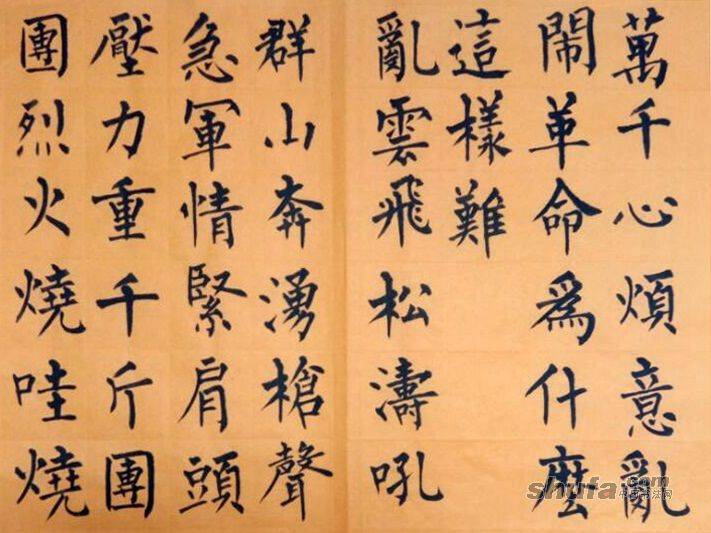 萬千心煩意亂
鬧革命爲什麽
這樣難
亂雲飛松濤吼
群山奔湧槍聲
急軍情緊肩頭
壓力重千斤團
團烈火燒哇燒
shufa.com
中国书法网